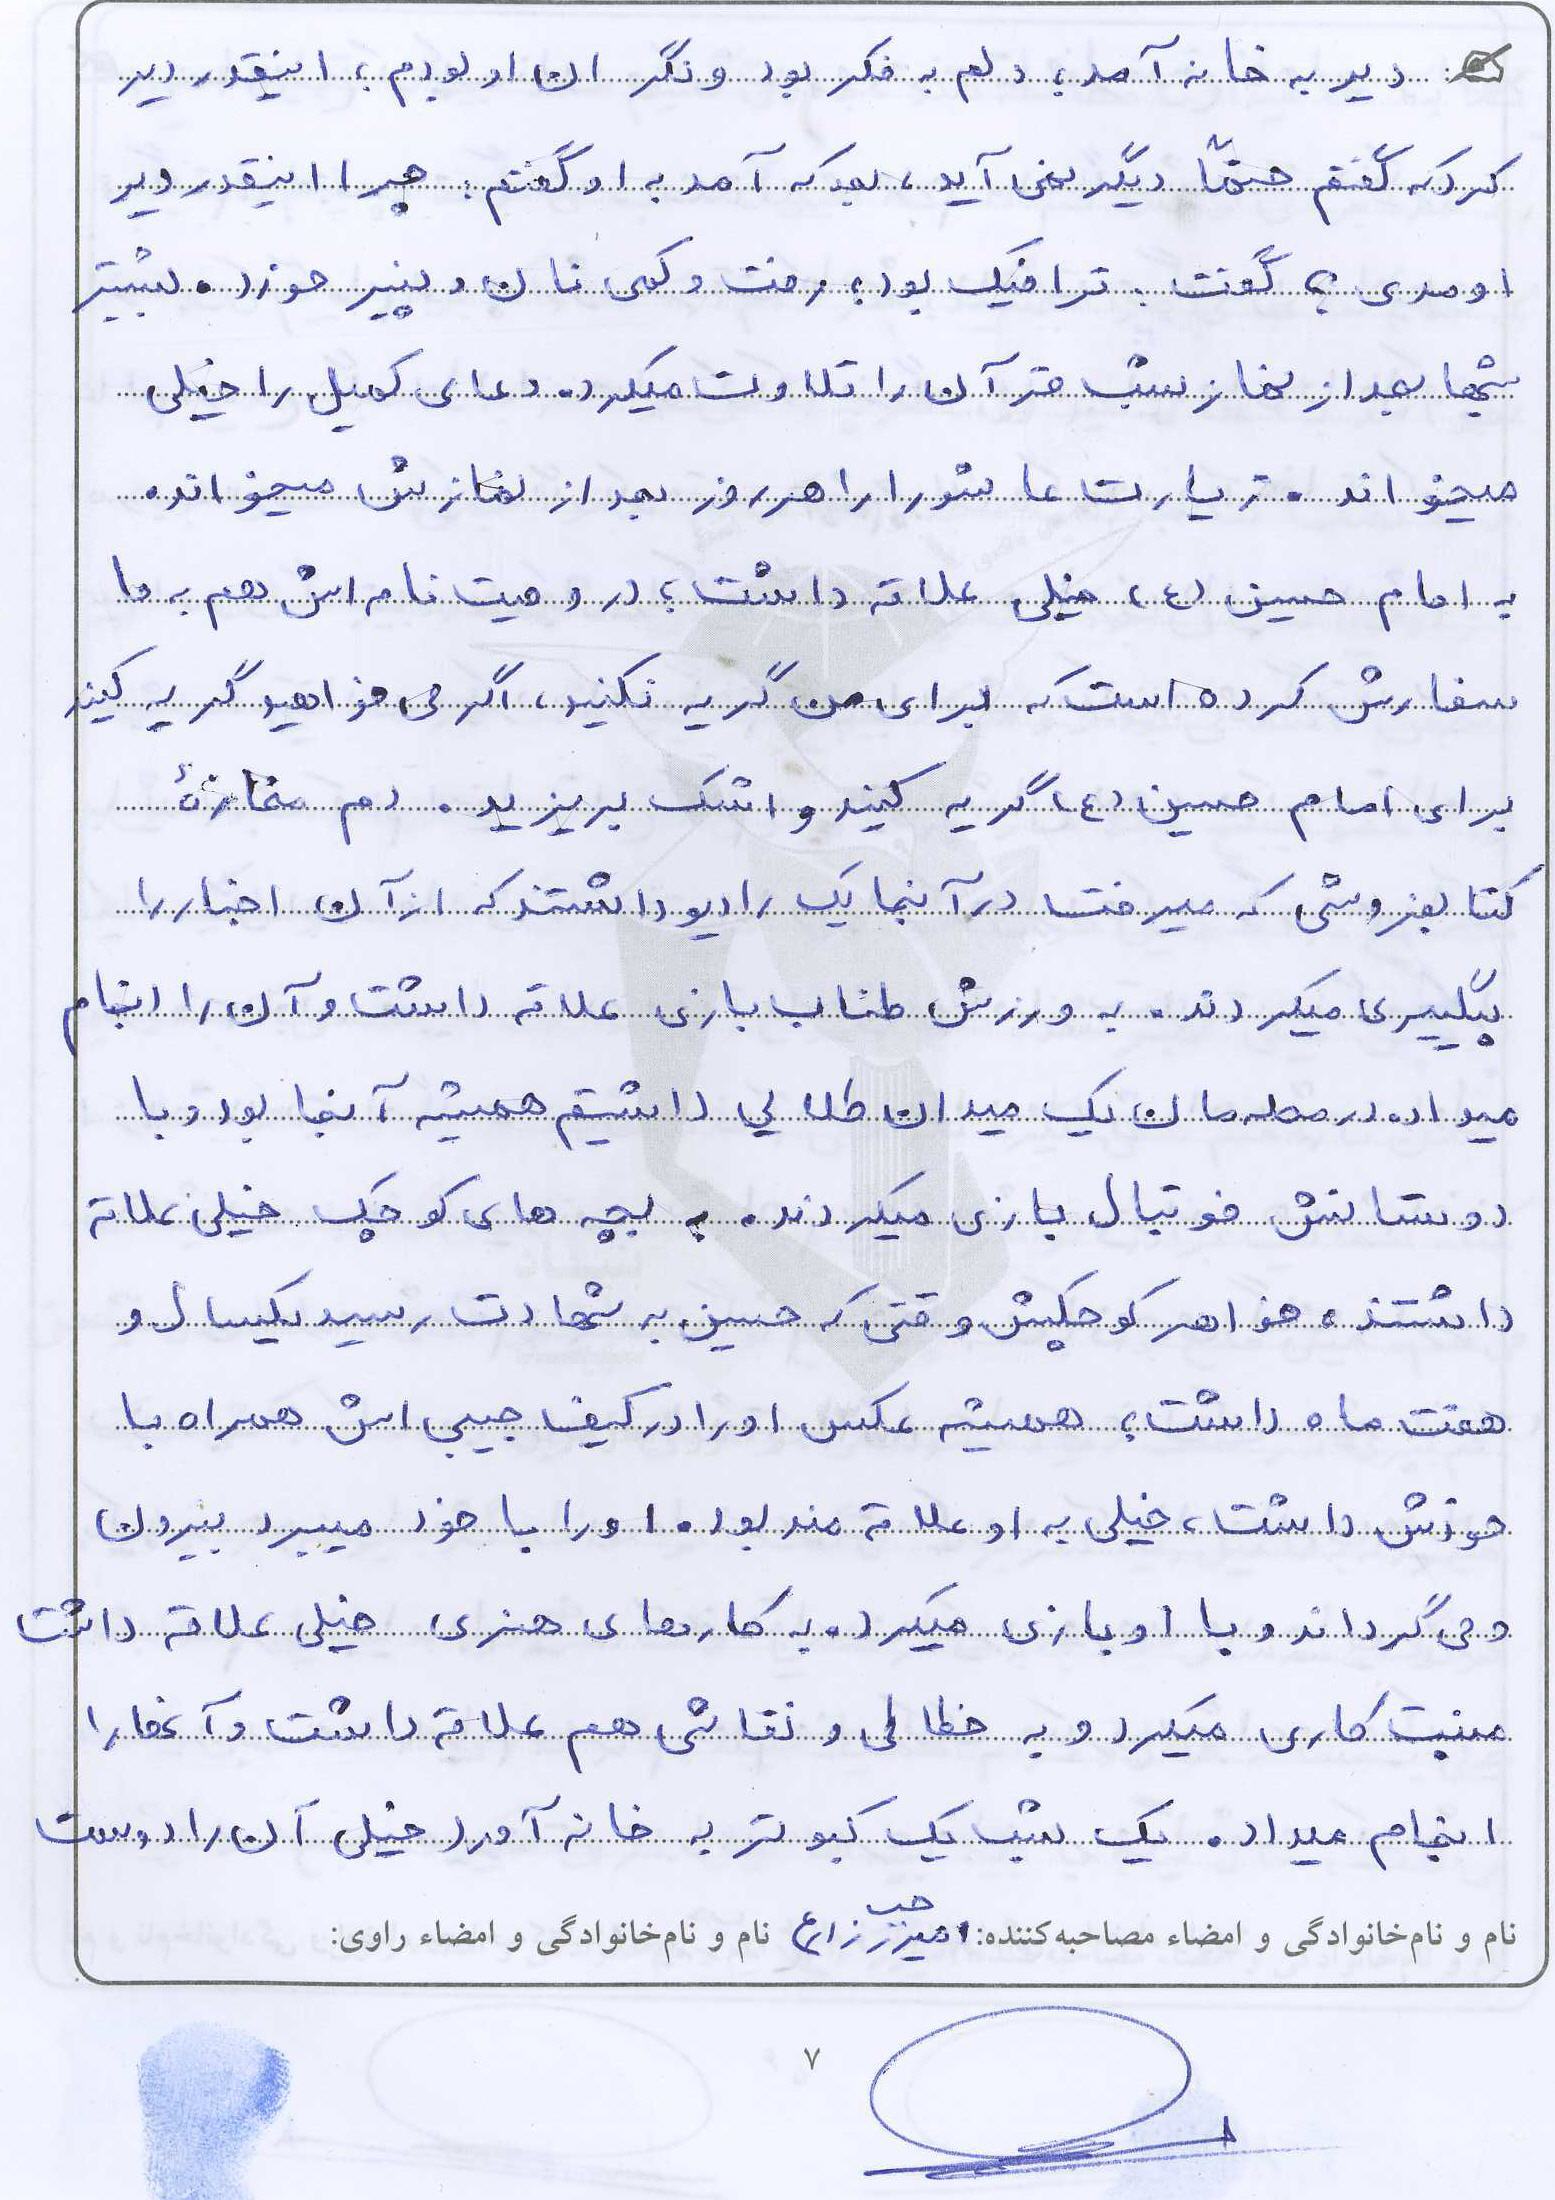 دیر به خانه آمد؛ دلم به فکر بود و نگران او بودم؛ اینقدر دیر
کرد که گفتم حتماً دیگر نمی آید، بعد که آمد به او گفتم: چرا اینقدر دیر
اومدی؟ گفت: ترافیک بود؛ رفت و کمی نان و پنیر خورد. بیشتر
شبها بعد از نماز شب قرآن را تلاوت میکرد. دعای کمیل را خیلی
میخواند. زیارت عاشورا را هر روز بعد از نمازش میخواند.
به امام حسین (ع) خیلی علاقه داشت؛ در وصیت نامه اش هم به ما
سفارش کرده است که برای من گریه نکنید، اگر می خواهید گریه کنید
برای امام حسین (ع) گریه کنید و اشک بریزید. دم مغازهٔ
کتابفروشی که میرفت در آنجا یک رادیو داشتند که از آن اخبار را
پیگیری میکردند. به ورزش طناب بازی علاقه داشت و آن را انجام
میداد. در محله مان یک میدان طلایی داشتیم همیشه آنجا بود و با
دوستانش فوتبال بازی میکردند. به بچه های کوچک خیلی علاقه
داشتند. خواهر کوچکش وقتی که حسین به شهادت رسید یکسال و
هفت ماه داشت؛ همیشه عکس او را در کیف جیبی اش همراه با
خودش داشت، خیلی به او علاقه مند بود. او را با خود میبرد بیرون
و می گرداند و با او بازی میکرد. به کارهای هنری خیلی علاقه داشت
منبت کاری میکرد و به خطاطی و نقاشی هم علاقه داشت و آنها را
انجام میداد. یک شب یک کبوتر به خانه آورد خیلی آن را دوست
نام و نام‌خانوادگی و امضاء مصاحبه‌کننده: نام و نام‌خانوادگی و امضاء راوی:
۷